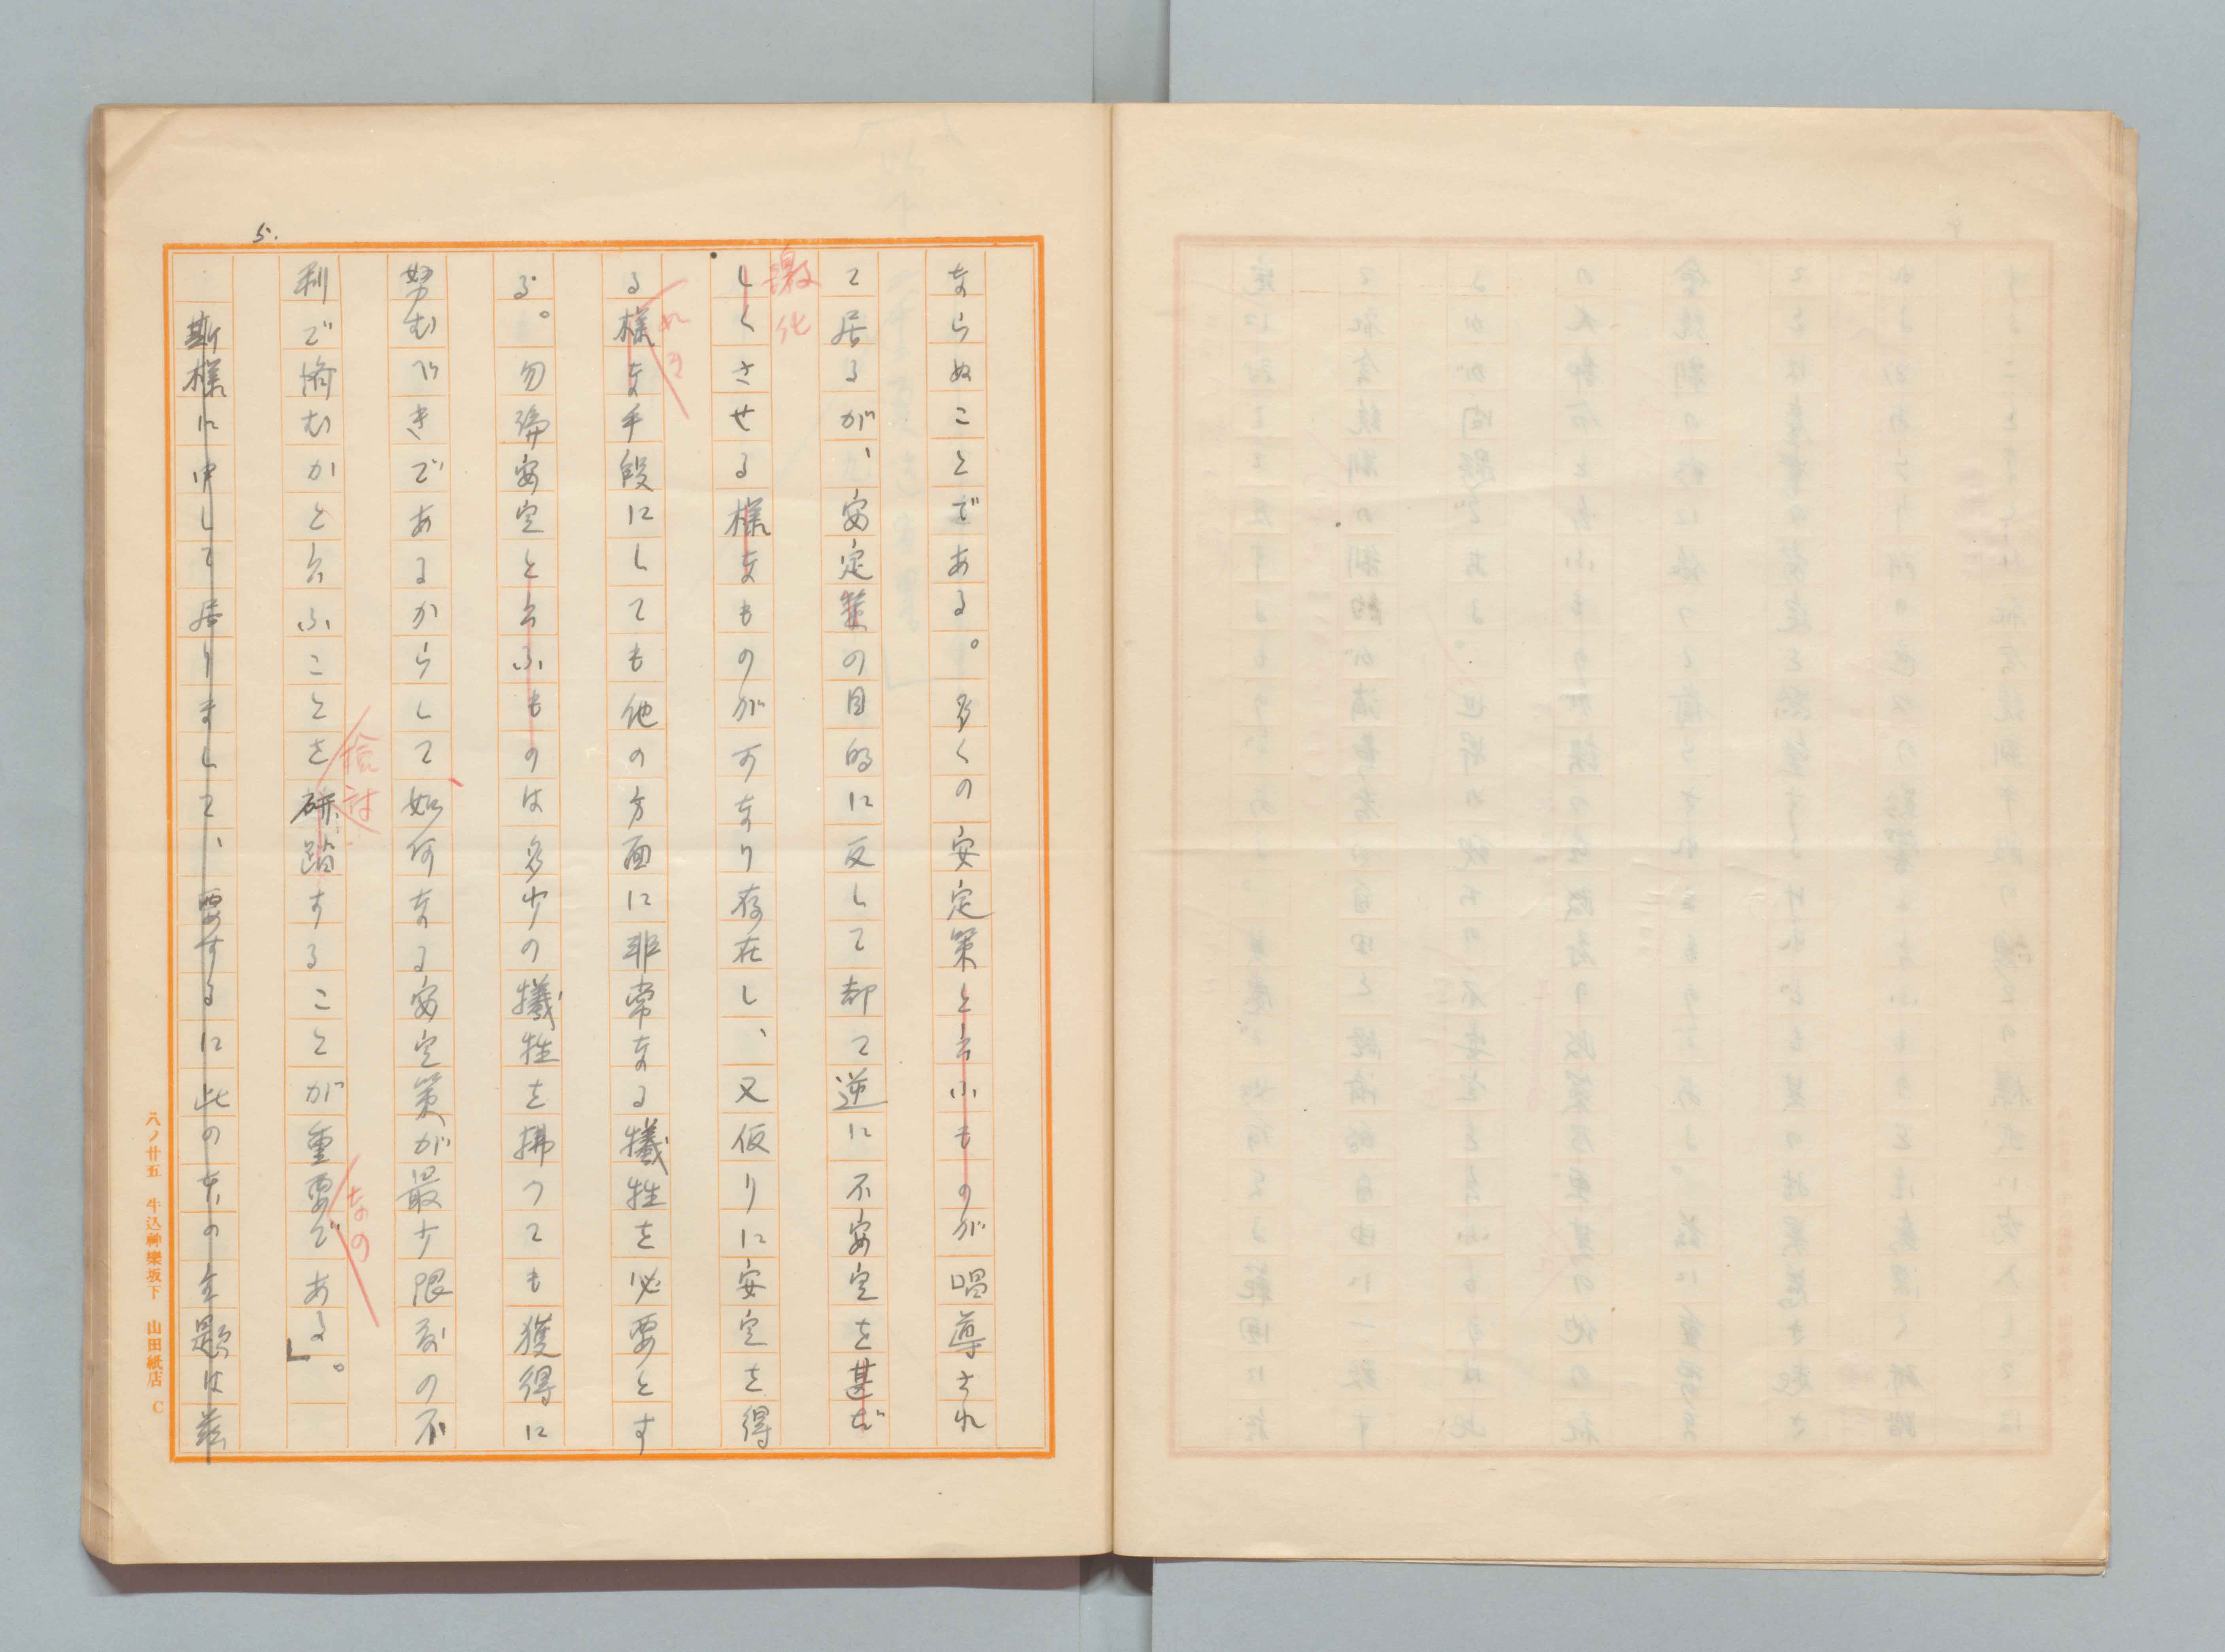 5.
ならぬことである。多くの安定策と云ふものが唱導され
て居るが、安定策の目的に反して却て逆に不安定を甚だ
激化
しくさせる様なものが可なり存在し、又仮りに安定を得
れる
る様な手段にしても他の方面に非常なる犠牲を必要とす
る。勿論安定と云ふものは多少の犠牲を拂つても獲得に
努むべきであるからして、如何なる安定策が最少限度の不
検討
なの
利で済むかと云ふことを研踏することが重要である」。
斯様に申して居りまして、要するに此の東の全題は茲
八ノ廿五 牛込神樂坂下 山田紙店 C